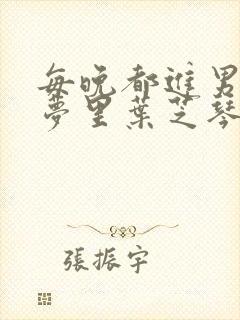 每晚都進男
夢里葉芝琴
張振宇